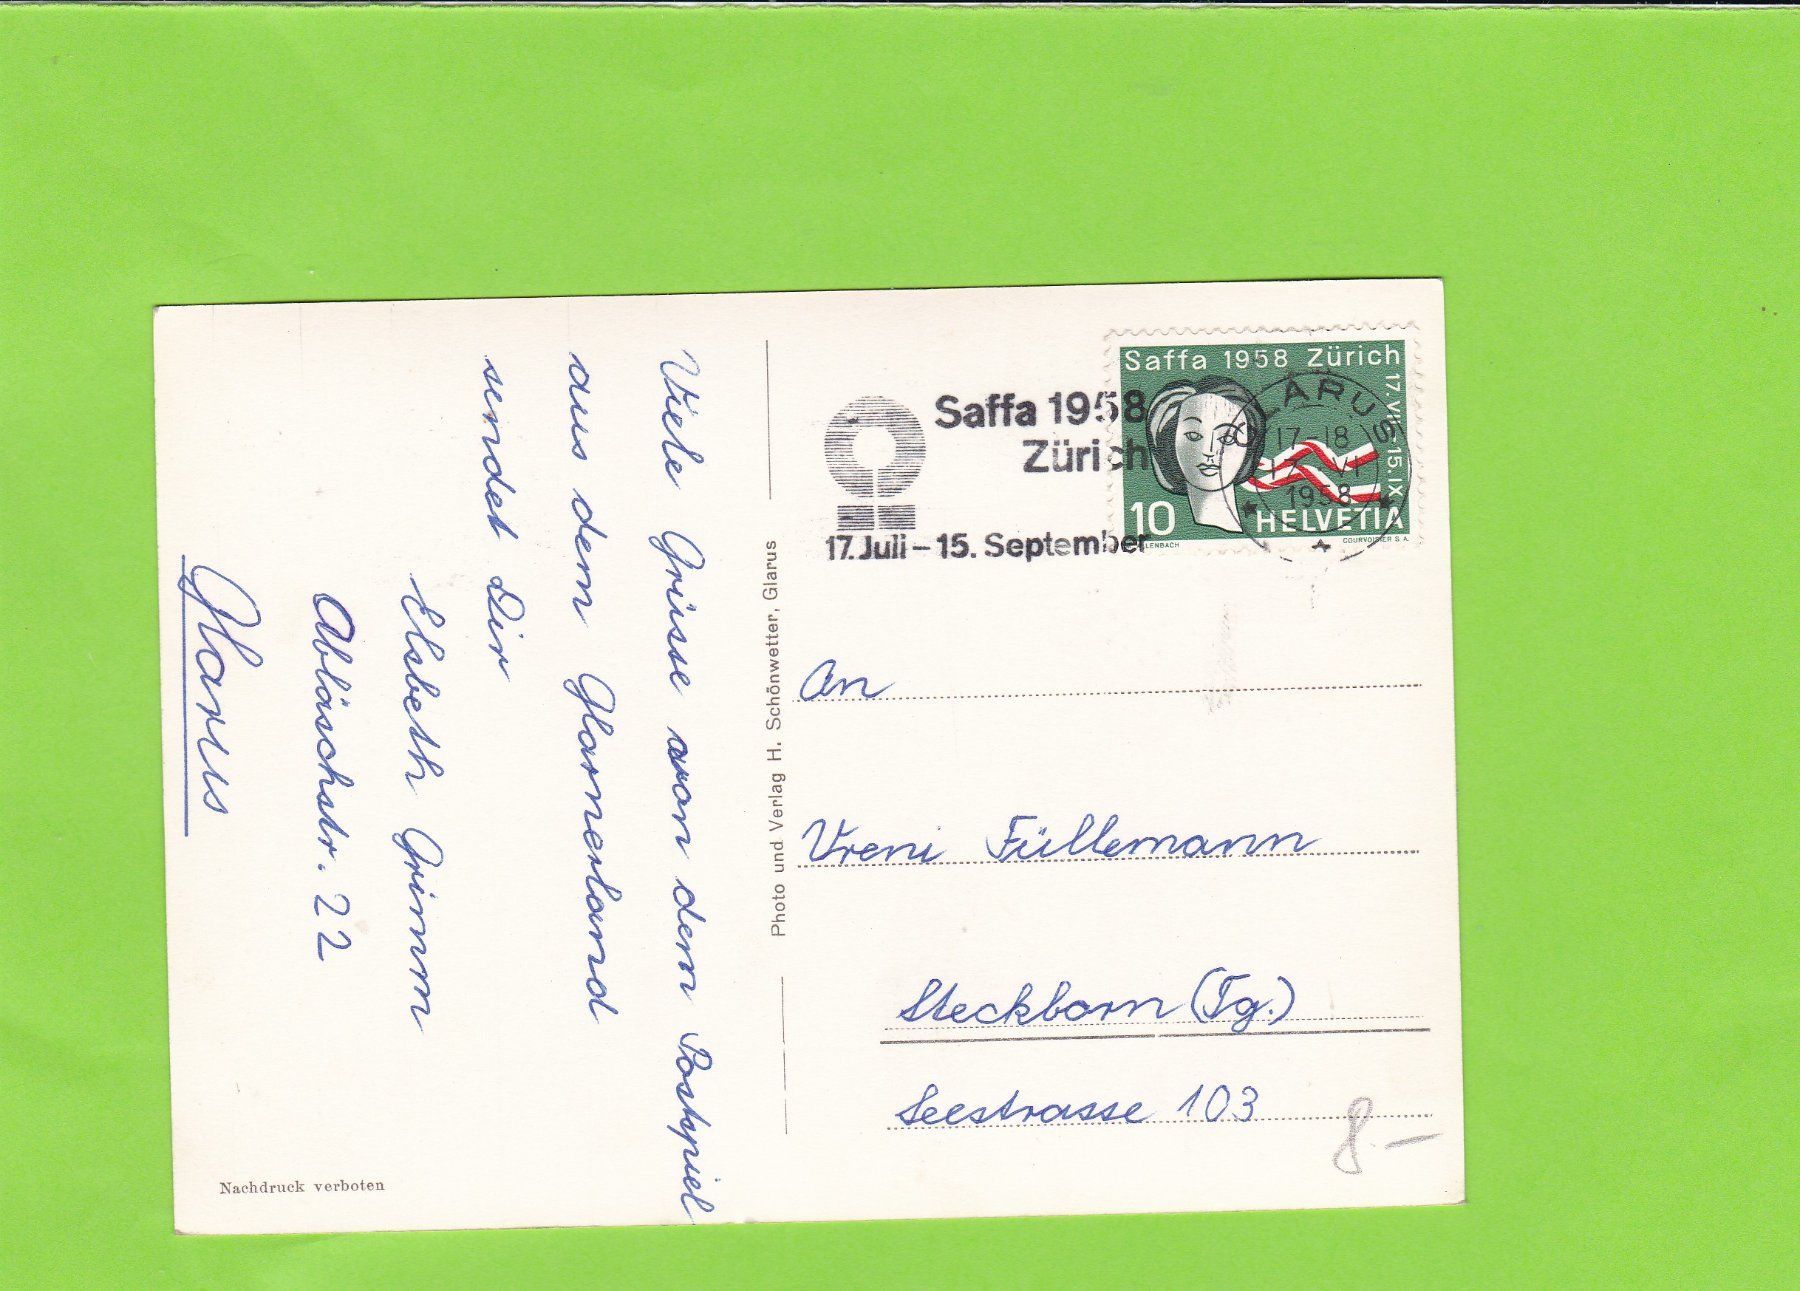 Viele Grüsse von dem Postspiel
aus dem Glarnerland
sendet Dir
Elsbeth Grimm
Abläschstr. 22
Glarus
Nachdruck verboten
Photo und Verlag H. Schönwetter, Glarus
Saffa 1958
Zürich
17. Juli – 15. September
Saffa 1958 Zürich
17. VII.-15. IX.
10 HELVETIA
COURVOISIER S.A.
GLARUS
17-18
17. VI
1958
An
Vreni Füllemann
Steckborn (Tg.)
Seestrasse 103
8.–